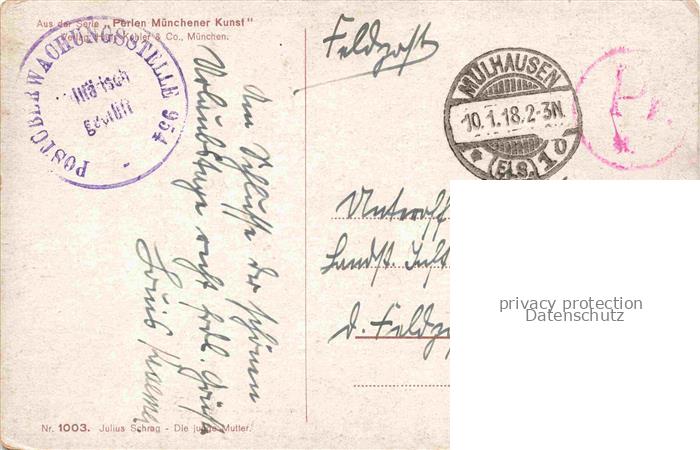 Aus der Serie "Perlen Münchener Kunst"
Verlag Hans Köhler & Co., München.
POSTÜBERWACHUNGSSTELLE 954
Militärisch
geprüft
Feldpost
MÜLHAUSEN
10.1.18.2-3N.
(ELS.)
* 1 o
Am Schlusse der schönen
Urlaubstage recht frdl. Grüße
Louis
Unteroff
Landst. Inft.
d. Feldp
privacy protection
Datenschutz
Nr. 1003. Julius Schrag - Die junge Mutter.